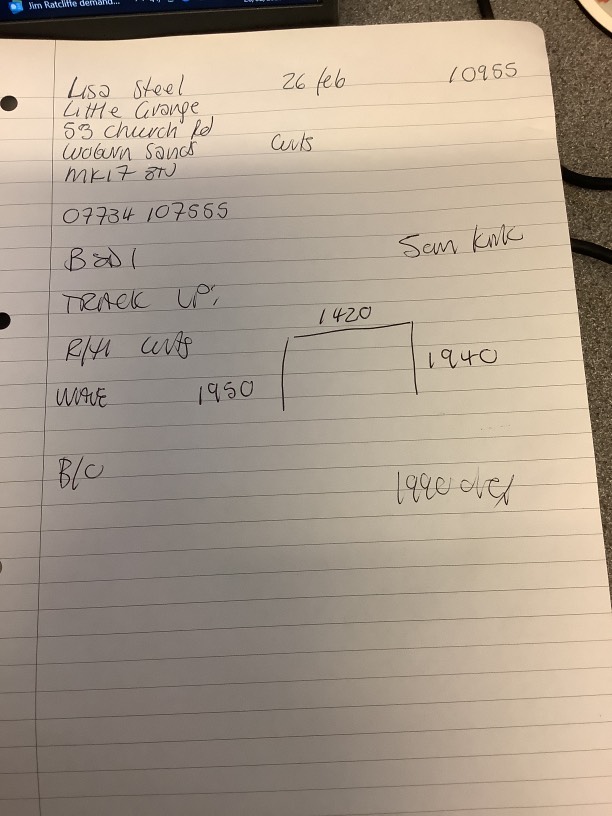 Jim Ratcliffe demand...
Lisa Steel 26 feb 10955
Little Grange
53 Church Rd
Woburn Sands Curts
MK17 8TU
07734 107555
Bed 1 Sam
TRACK UP:
1420
R/H Curts 1940
WAVE 1950
B/O
1990